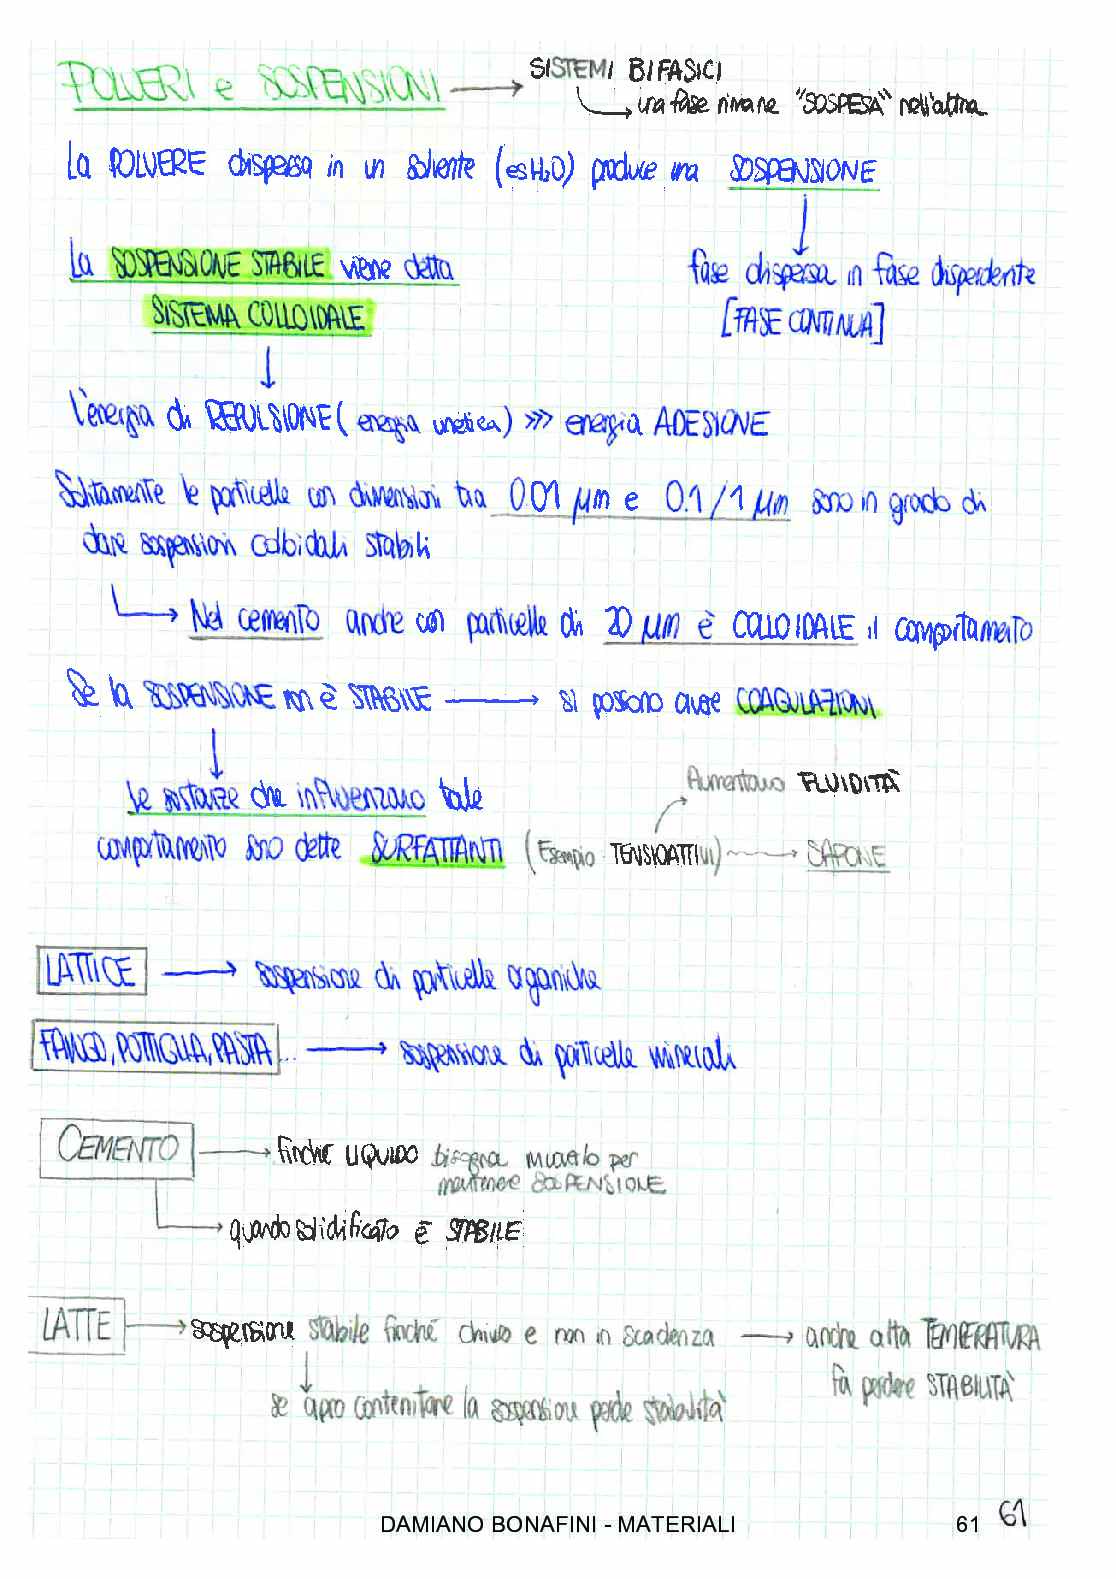 POLVERI e SOSPENSIONI → SISTEMI BIFASICI
↳ una fase rimane "SOSPESA" nell'altra
La POLVERE dispersa in un solvente (es H₂O) produce una SOSPENSIONE
↓
fase dispersa in fase disperdente
[FASE CONTINUA]
La SOSPENSIONE STABILE viene detta
SISTEMA COLLOIDALE
↓
l'energia di REPULSIONE (energia cinetica) >>> energia ADESIONE
Solitamente le particelle con dimensioni tra 0.01 μm e 0.1/1 μm sono in grado di
dare sospensioni colloidali stabili
↳ Nel cemento anche con particelle di 20 μm è COLLOIDALE il comportamento
Se la SOSPENSIONE non è STABILE → si possono avere COAGULAZIONI
↓
Le sostanze che influenzano tale
comportamento sono dette SURFATTANTI (Esempio TENSIOATTIVI) → SAPONE
Aumentano FLUIDITÀ
LATTICE → sospensione di particelle organiche
FANGO, POLTIGLIA, PASTA... → sospensione di particelle minerali
CEMENTO → finché LIQUIDO bisogna muoverlo per
mantenere SOSPENSIONE
→ quando solidificato è STABILE
LATTE → sospensione stabile finché chiuso e non in scadenza → anche alta TEMPERATURA
fa perdere STABILITÀ
↓
se apro contenitore la sospensione perde stabilità
DAMIANO BONAFINI - MATERIALI 61 61